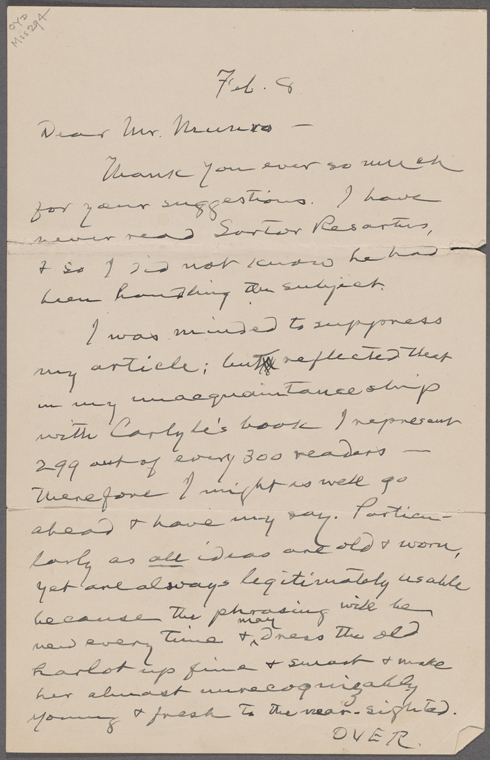 OYD
Mss 294
Feb. 8
Dear Mr. Munro —
Thank you ever so much
for your suggestions. I have
never read Sartor Resartus,
& so I did not know he had
been handling the subject.
I was minded to suppress
my article; but reflected that
in my unacquaintanceship
with Carlyle's book I represent
299 out of every 300 readers —
therefore I might as well go
ahead & have my say. Particu-
larly as all ideas are old & worn,
yet are always legitimately usable
because the phrasing will be
new every time & may dress the old
harlot up fine & smart & make
her almost unrecognizably
young & fresh to the near-sighted.
OVER.